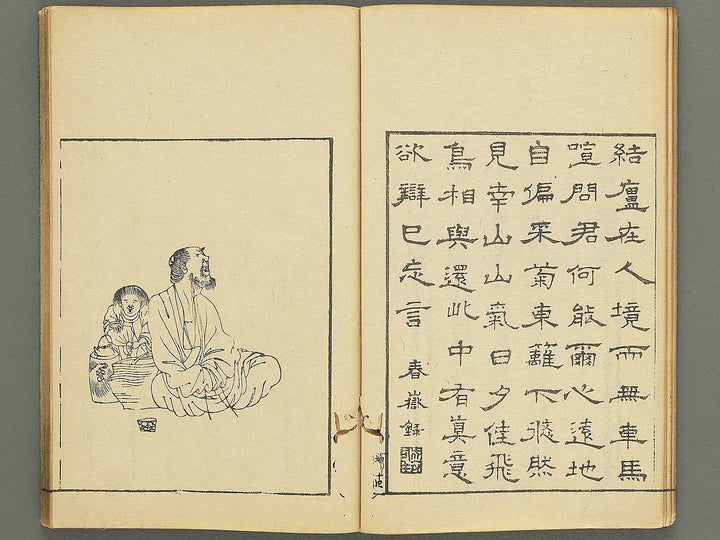 結廬在人境而無車馬
喧問君何能爾心遠地
自偏采菊東籬下悠然
見南山山氣日夕佳飛
鳥相與還此中有眞意
欲辯已忘言 春嶽録